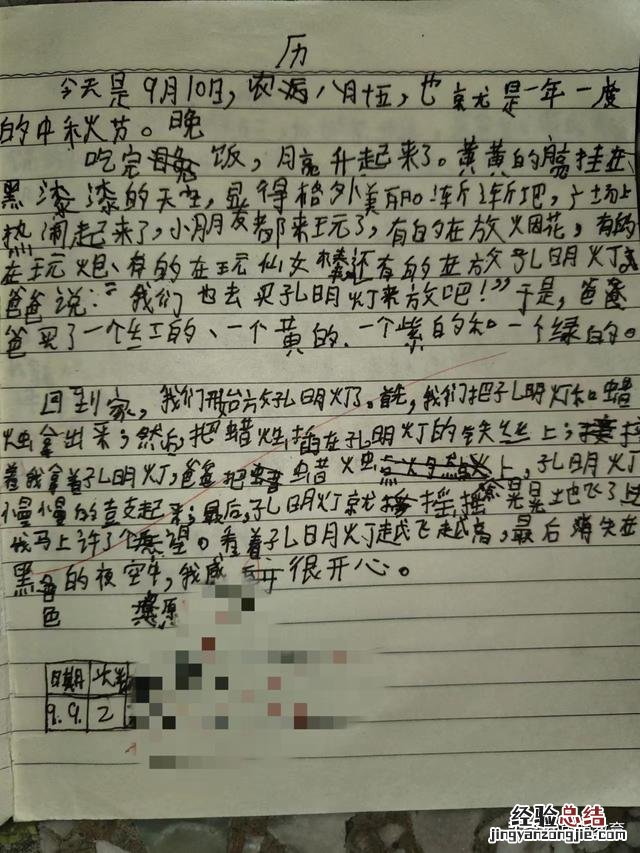 历
今天是9月10日,农历八月十五,也就是一年一度
的中秋节。晚
吃完饭,月亮升起来了。黄黄的月亮挂在
黑漆漆的天空,显得格外美丽。渐渐地,广场上
热闹起来了,小朋友都来玩了,有的在放烟花,有的
在玩炮、有的在玩仙女棒还有的在放孔明灯
爸爸说:“我们也去买孔明灯来放吧!”于是,爸爸
爸买了一个红的、一个黄的、一个紫的和一个绿的。
回到家,我们开始放孔明灯了。首先,我们把孔明灯和蜡
烛拿出来;然后把蜡烛插在孔明灯的铁丝上;接
着我拿着孔明灯,爸爸把蜡火上,孔明灯
慢慢的支起来;最后,孔明灯就摇摇晃晃地飞了
我马上许了个愿望。看着孔明灯越飞越高,最后消失在
黑的夜空中,我感很开心。
色 愿
日期 次数
9.9. 2
经验总结
jingyanzongjie.com